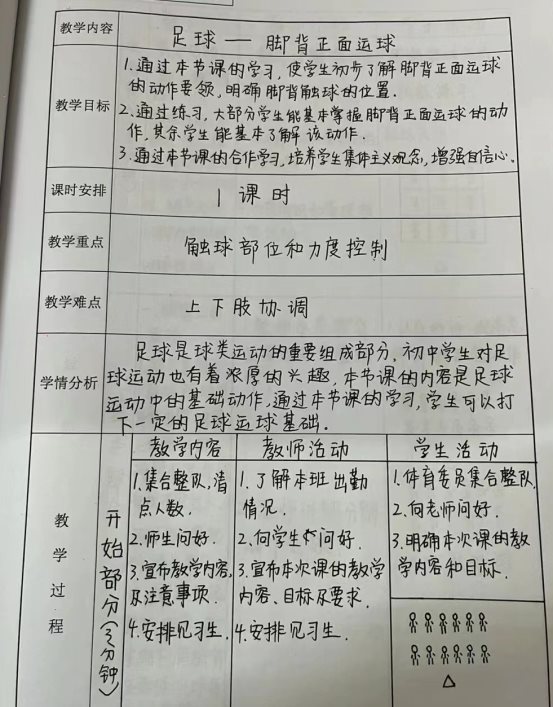 教学内容
足球——脚背正面运球
教学目标
1.通过本节课的学习,使学生初步了解脚背正面运球
的动作要领,明确脚背触球的位置.
2.通过练习,大部分学生能基本掌握脚背正面运球的动
作,其余学生能基本了解该动作.
3.通过本节课的合作学习,培养学生集体主义观念,增强自信心.
课时安排
1课时
教学重点
触球部位和力度控制
教学难点
上下肢协调
学情分析
足球是球类运动的重要组成部分,初中学生对足
球运动也有着浓厚的兴趣,本节课的内容是足球
运动中的基础动作,通过本节课的学习,学生可以打
下一定的足球运球基础.
教学过程
开始部分(3分钟)
教学内容
1.集合整队,清
点人数.
2.师生问好.
3.宣布教学内容,
及注意事项.
4.安排见习生.
教师活动
1.了解本班出勤
情况.
2.向学生问好.
3.宣布本次课的教学
内容、目标及要求.
4.安排见习生.
学生活动
1.体育委员集合整队.
2.向老师问好.
3.明确本次课的教
学内容和目标.